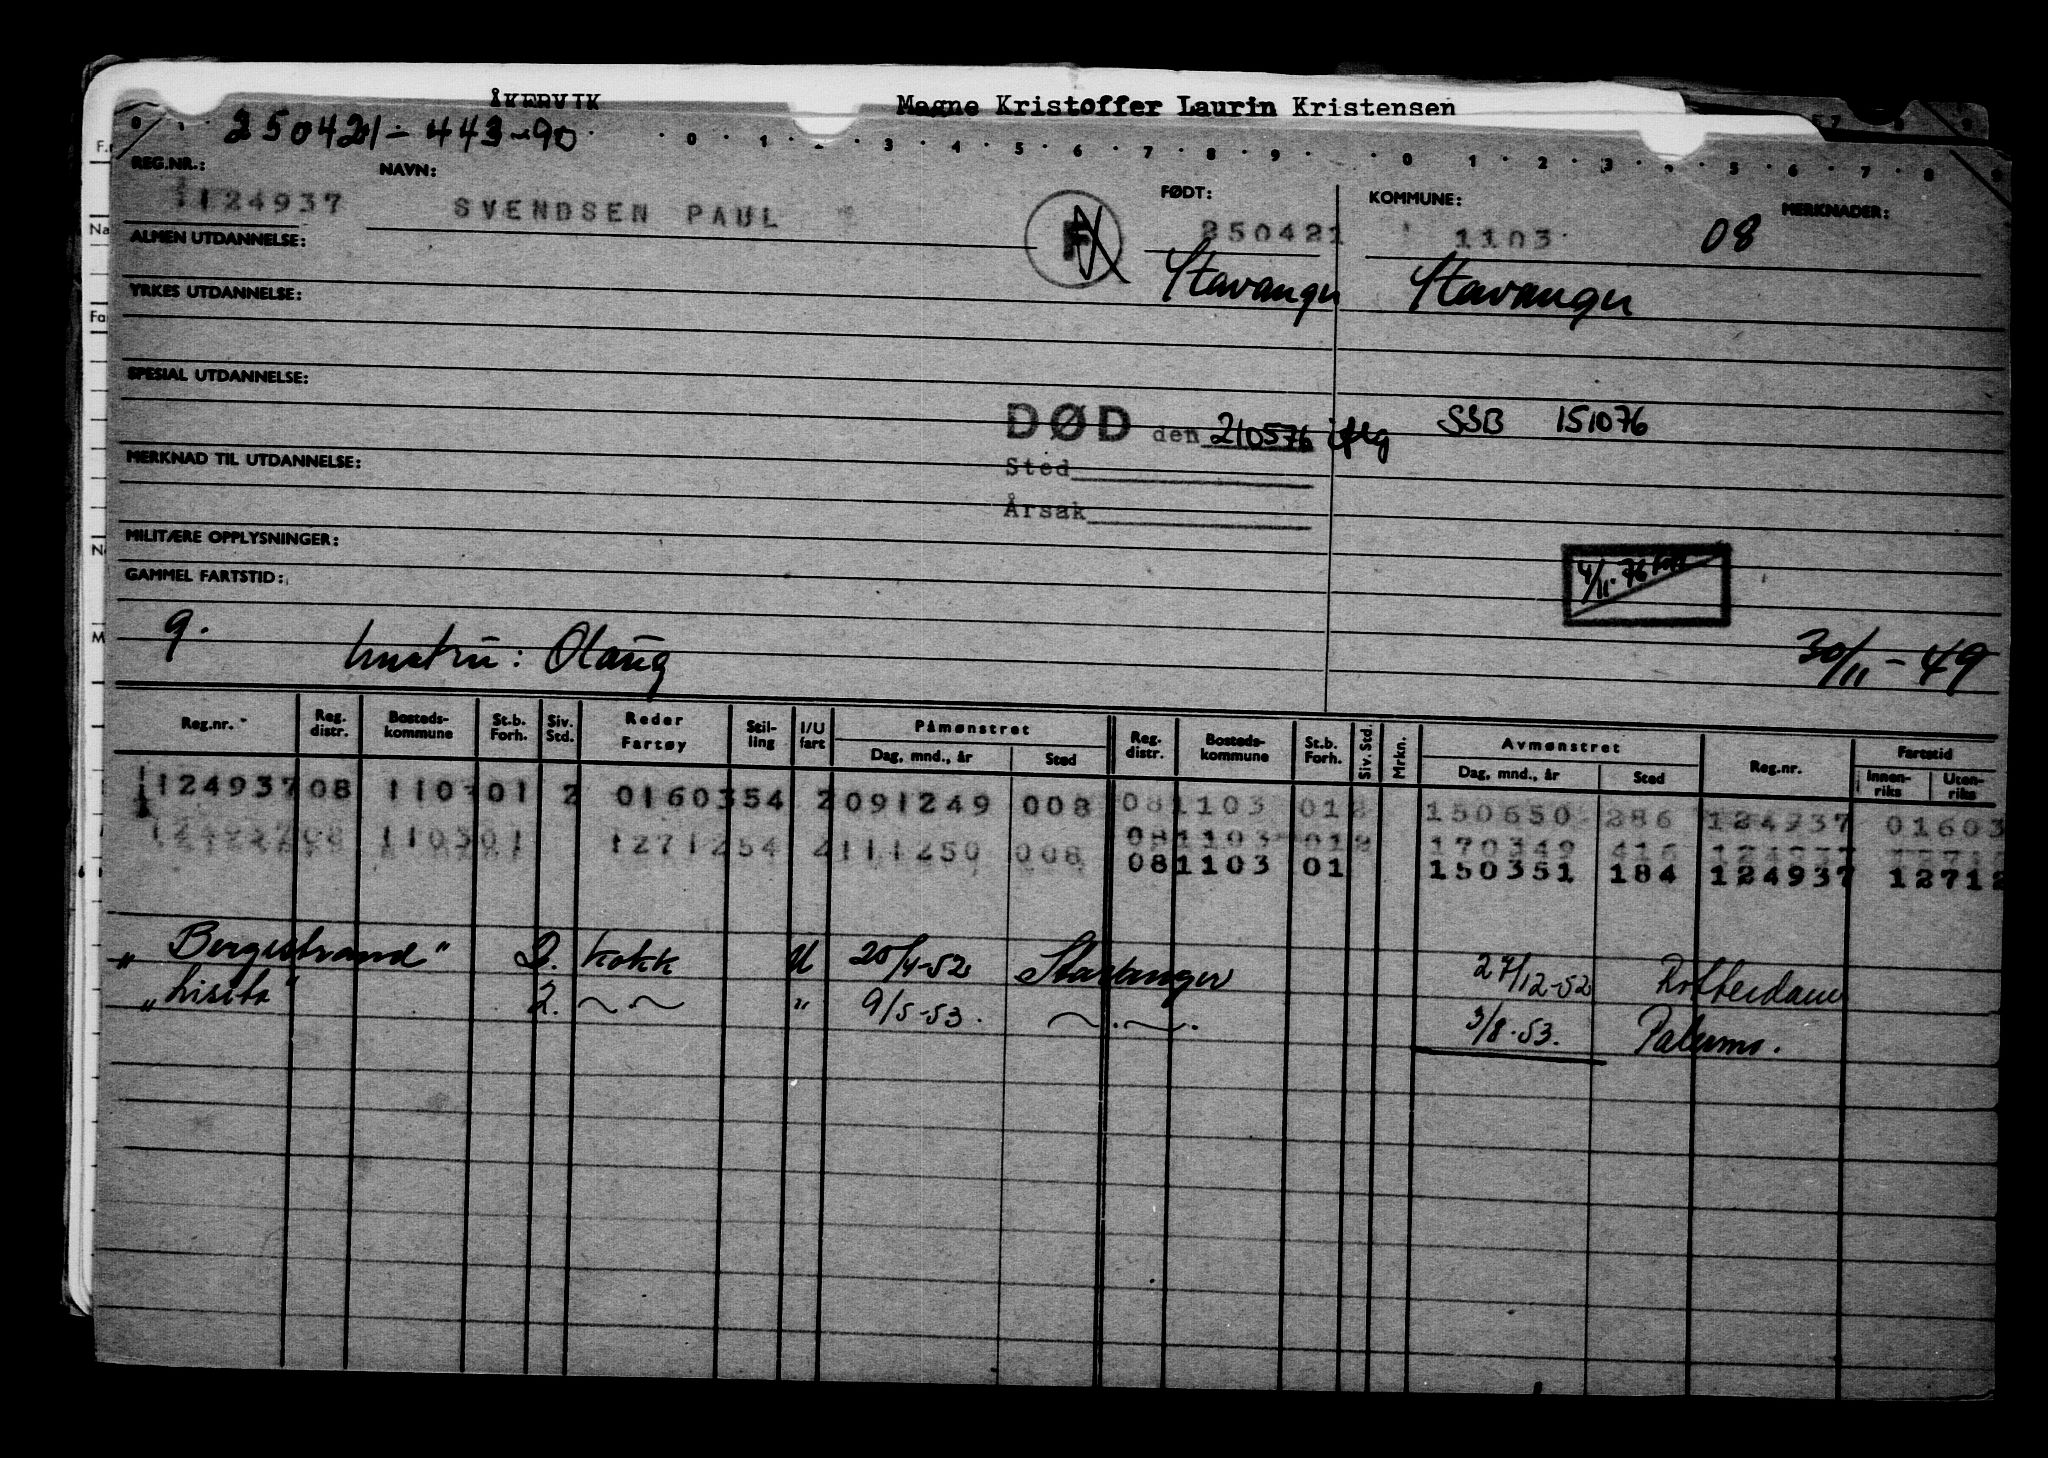 ÅKERVIK Magne Kristoffer Laurin Kristensen
250421-443-90
0 1 2 3 4 5 6 7 8 9 0 1 2 3 4 5 6 7 8 9
REG.NR.: NAVN: FØDT: KOMMUNE: MERKNADER:
124937 SVENDSEN PAUL F 250421 1103 08
ALMEN UTDANNELSE: Stavanger Stavanger
YRKES UTDANNELSE:
SPESIAL UTDANNELSE:
DØD den 210576 iflg SSB 151076
MERKNAD TIL UTDANNELSE: Sted
Årsak
MILITÆRE OPPLYSNINGER:
4/11-76
GAMMEL FARTSTID:
g. hustru: Olaug 30/11-49
Reg.nr. Reg. distr. Bosteds-kommune St.b. Forh. Siv. Std. Reder Fartøy Stil-ling I/U fart Påmønstret Dag, mnd., år Sted Reg. distr. Bosteds-kommune St.b. Forh. Siv. Std. Mrkn. Avmønstret Dag, mnd., år Sted Reg.nr. Fartstid Innen-riks Uten-riks
124937 08 110 01 2 0160354 2 091249 008 08 1103 01 2 150650 286 124937 01603
124937 08 1103 01 1271254 2 111250 008 08 1103 01 2 170349 416 124937
08 1103 01 150351 184 124937 12712
"Bergestrand" 2. kokk U 25/4-52 Stavanger 27/12-52 Rotterdam
"Lisita" 2. ~.~ " 9/5-53. ~.~. 3/8-53. Palermo.